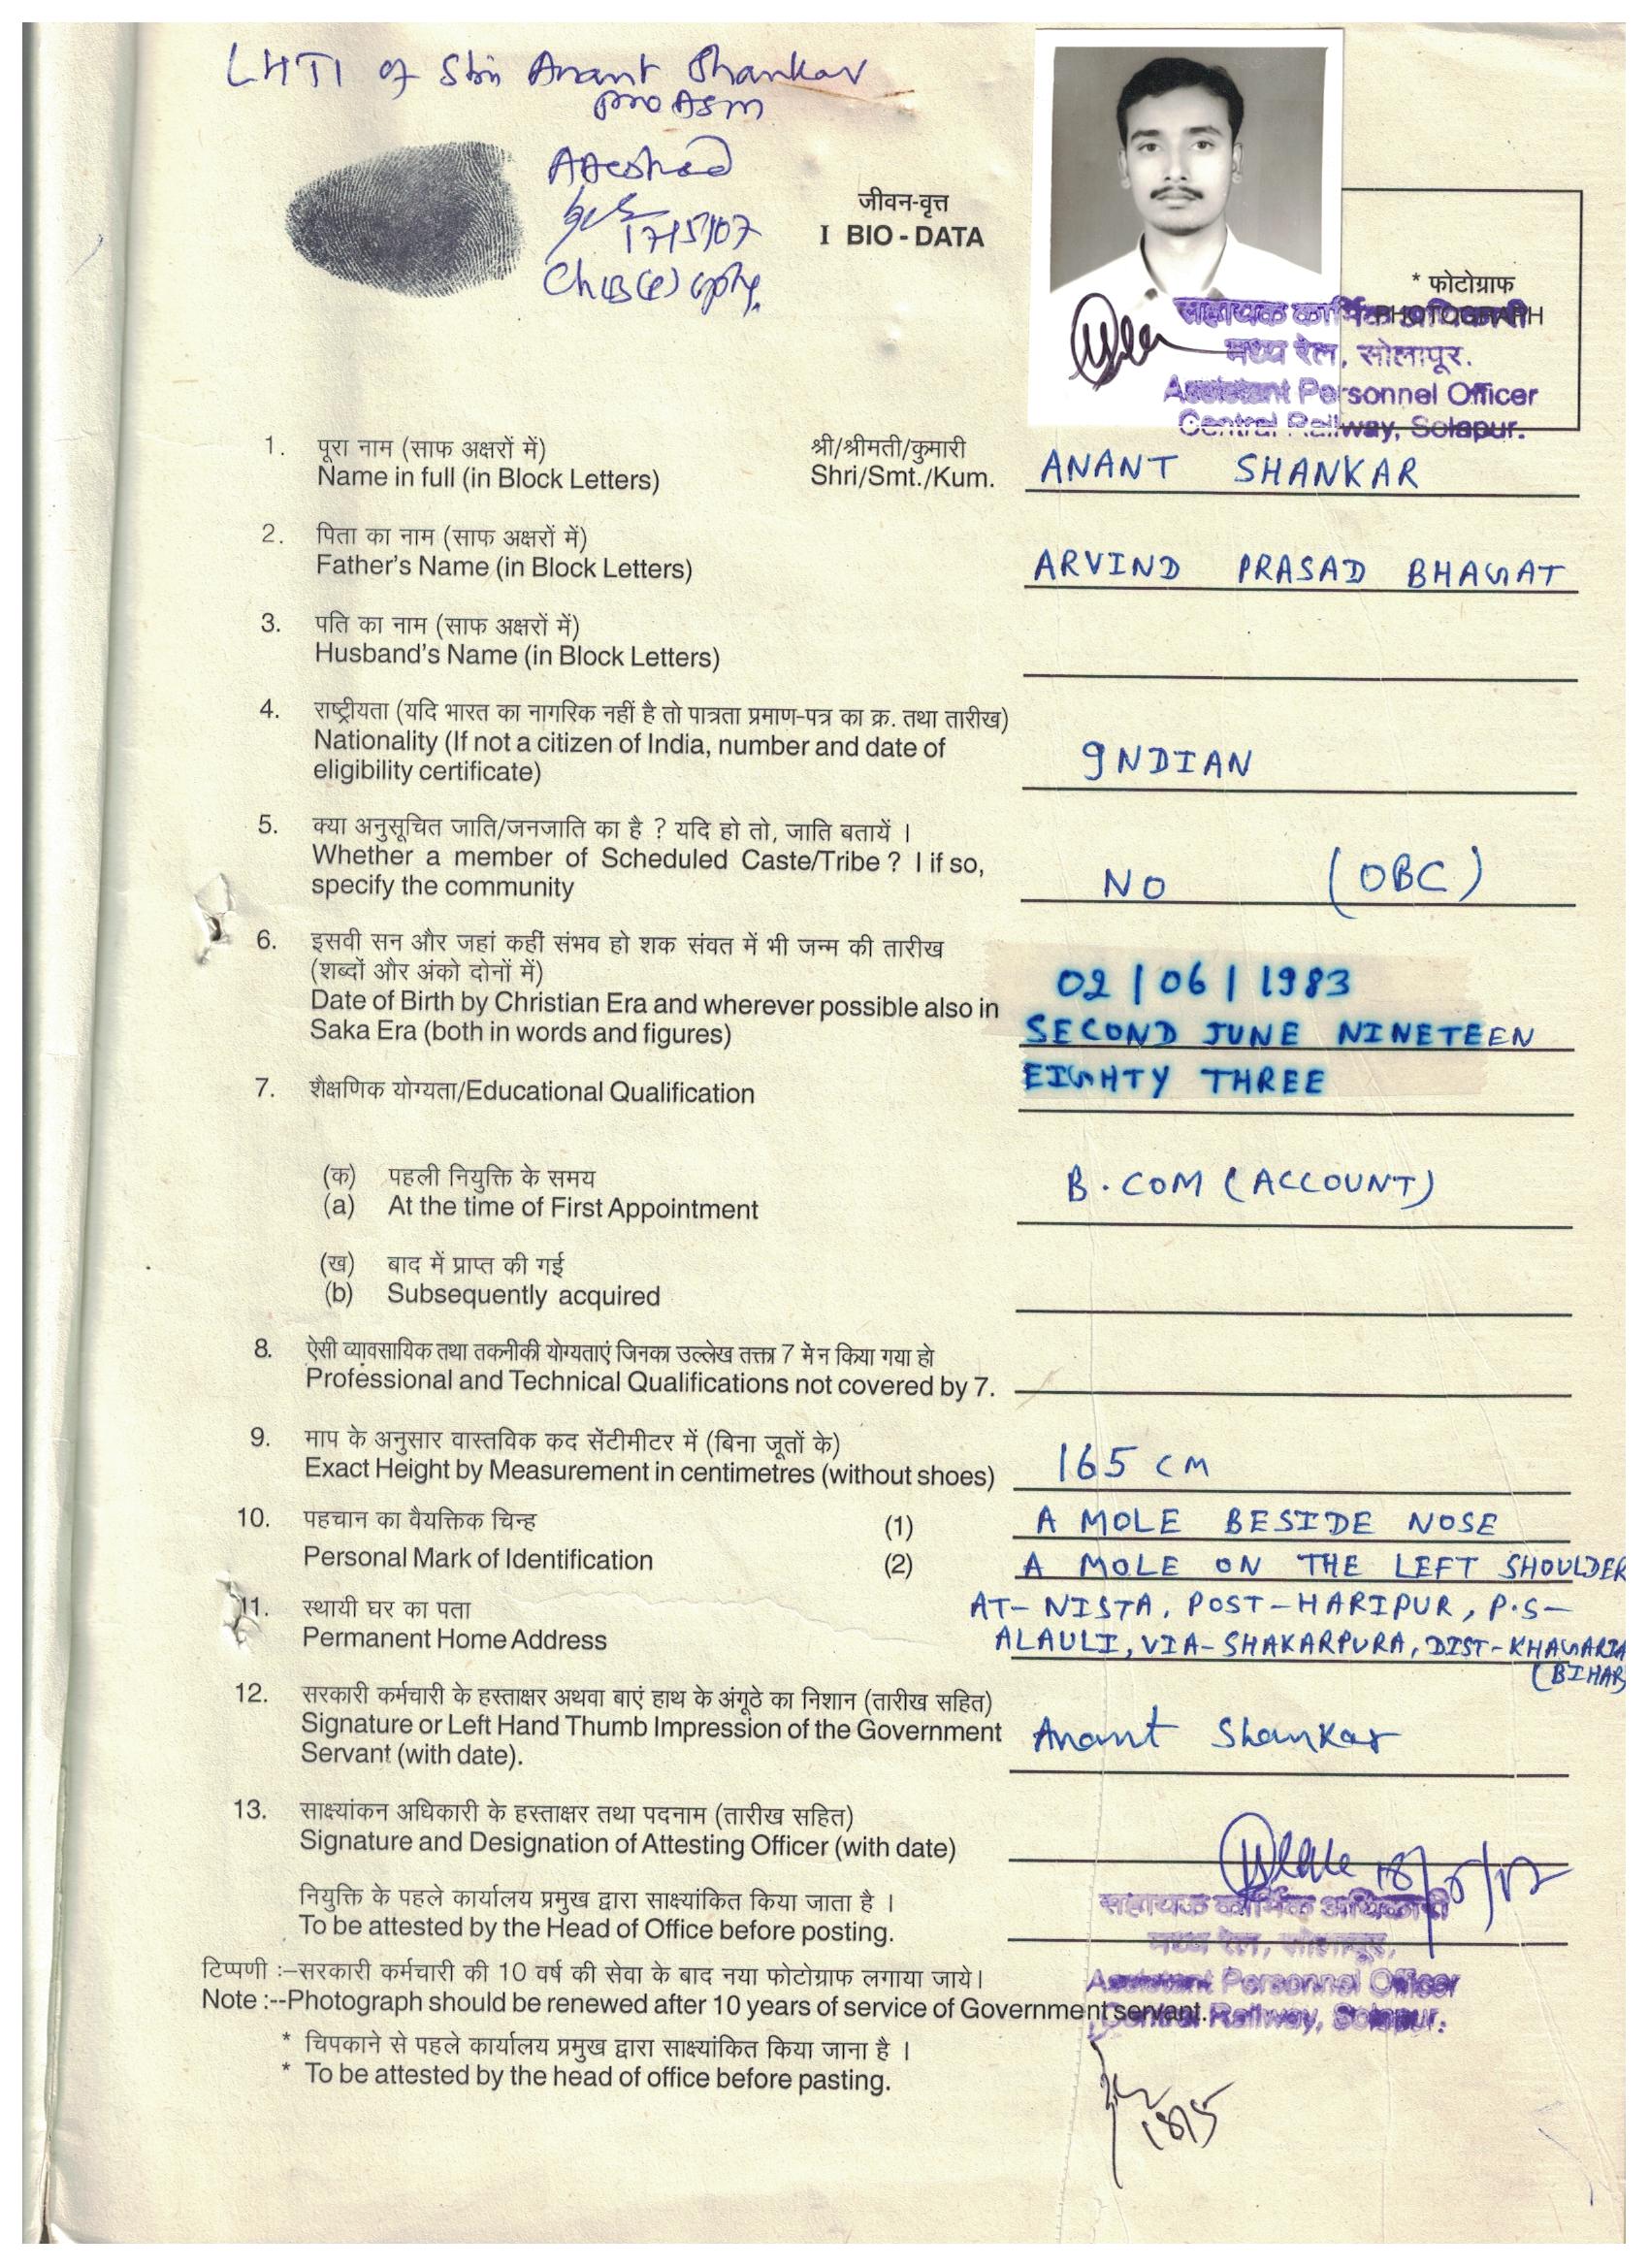 LHTI of Shri Anant Shankar
Pro ASM
Attested
17/5/07
जीवन-वृत्त
I BIO - DATA
* फोटोग्राफ
PHOTOGRAPH
सहायक कार्मिक अधिकारी
मध्य रेल, सोलापूर.
Assistant Personnel Officer
Central Railway, Solapur.
1. पूरा नाम (साफ अक्षरों में) श्री/श्रीमती/कुमारी
Name in full (in Block Letters) Shri/Smt./Kum. ANANT SHANKAR
2. पिता का नाम (साफ अक्षरों में)
Father's Name (in Block Letters) ARVIND PRASAD BHAGAT
3. पति का नाम (साफ अक्षरों में)
Husband's Name (in Block Letters)
4. राष्ट्रीयता (यदि भारत का नागरिक नहीं है तो पात्रता प्रमाण-पत्र का क्र. तथा तारीख)
Nationality (If not a citizen of India, number and date of
eligibility certificate) INDIAN
5. क्या अनुसूचित जाति/जनजाति का है ? यदि हो तो, जाति बतायें ।
Whether a member of Scheduled Caste/Tribe ? I if so,
specify the community NO (OBC)
6. इसवी सन और जहां कहीं संभव हो शक संवत में भी जन्म की तारीख
(शब्दों और अंको दोनों में) 02/06/1983
Date of Birth by Christian Era and wherever possible also in
Saka Era (both in words and figures) SECOND JUNE NINETEEN
EIGHTY THREE
7. शैक्षणिक योग्यता/Educational Qualification
(क) पहली नियुक्ति के समय
(a) At the time of First Appointment B.COM (ACCOUNT)
(ख) बाद में प्राप्त की गई
(b) Subsequently acquired
8. ऐसी व्यावसायिक तथा तकनीकी योग्यताएं जिनका उल्लेख तक्ता 7 में न किया गया हो
Professional and Technical Qualifications not covered by 7.
9. माप के अनुसार वास्तविक कद सेंटीमीटर में (बिना जूतों के)
Exact Height by Measurement in centimetres (without shoes) 165 CM
10. पहचान का वैयक्तिक चिन्ह (1) A MOLE BESIDE NOSE
Personal Mark of Identification (2) A MOLE ON THE LEFT SHOULDER
11. स्थायी घर का पता AT- NISTA, POST-HARIPUR, P.S-
Permanent Home Address ALAULI, VIA-SHAKARPURA, DIST-KHAGARIA
(BIHAR)
12. सरकारी कर्मचारी के हस्ताक्षर अथवा बाएं हाथ के अंगूठे का निशान (तारीख सहित)
Signature or Left Hand Thumb Impression of the Government
Servant (with date). Anant Shankar
13. साक्ष्यांकन अधिकारी के हस्ताक्षर तथा पदनाम (तारीख सहित)
Signature and Designation of Attesting Officer (with date)
18/5/07
नियुक्ति के पहले कार्यालय प्रमुख द्वारा साक्ष्यांकित किया जाता है ।
To be attested by the Head of Office before posting.
सहायक कार्मिक अधिकारी
मध्य रेल, सोलापूर.
Assistant Personnel Officer
Central Railway, Solapur.
टिप्पणी :–सरकारी कर्मचारी की 10 वर्ष की सेवा के बाद नया फोटोग्राफ लगाया जाये।
Note :--Photograph should be renewed after 10 years of service of Government servant.
* चिपकाने से पहले कार्यालय प्रमुख द्वारा साक्ष्यांकित किया जाना है ।
* To be attested by the head of office before pasting.
18/5